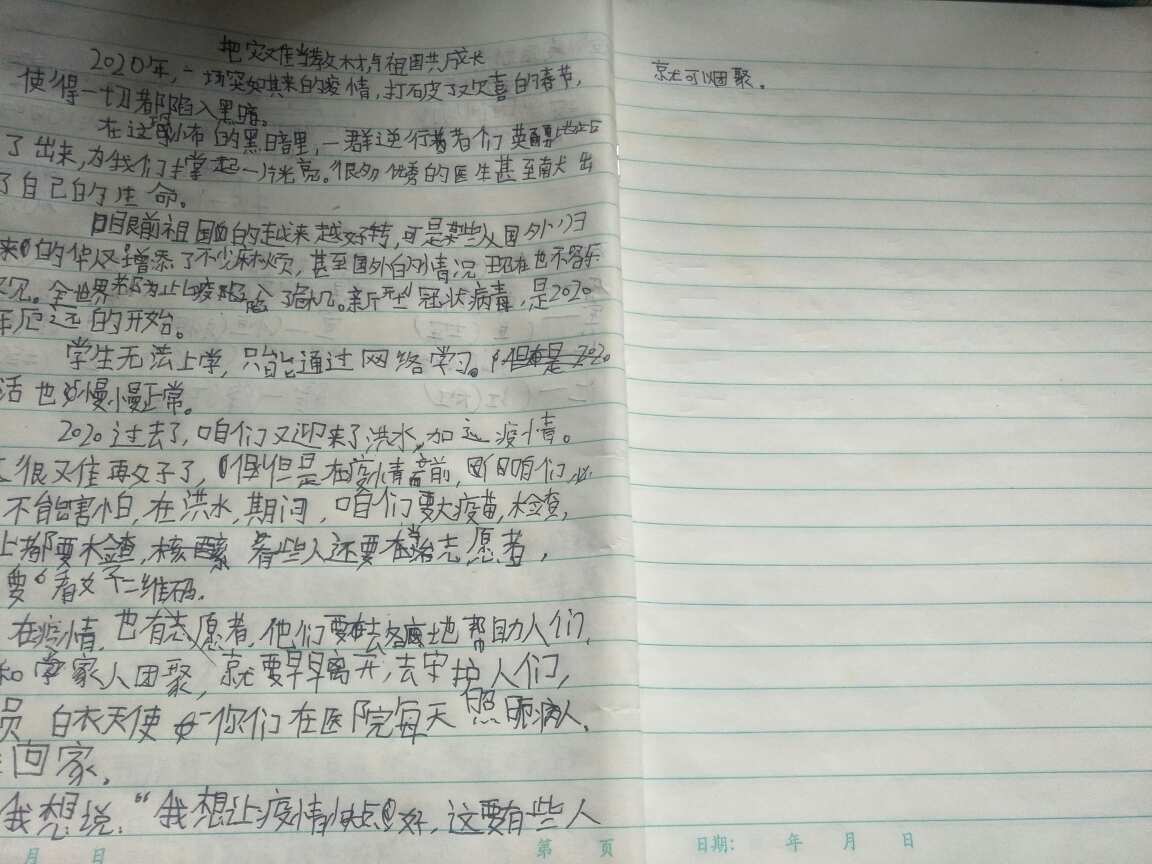 把灾难当教材与祖国共成长
2020年,一场突如其来的疫情,打破了欢喜的春节,
使得一切都陷入黑暗。
在这恐怖的黑暗里,一群逆行者们英勇地站
了出来,为我们掌起一片光亮。很多优秀的医生甚至献出
了自己的生命。
目前祖国的越来越好转,可是某些从国外归
来的华人又增添了不少麻烦,甚至国外的情况现在也不容乐
观。全世界都为止疫陷入了危机。新型冠状病毒,是2020
年厄运的开始。
学生无法上学,只能通过网络学习。但是2020
活也慢慢正常。
2020过去了,咱们又迎来了洪水,加疫情。
很又佳再父子了,但是在疫情面前,咱们
不能害怕,在洪水,期间,咱们要大疫苗,检查,
上都要检查,核酸 有些人还要在当志愿者,
要看好二维码.
在疫情,也有志愿者,他们要去各地帮助人们,
和家人团聚,就要早早离开,去守护人们,
员 白衣天使 你们在医院每天照顾病人、
回家.
我想说:“我想让疫情快点好,这要有些人
就可以团聚。
第 页
日期: 年 月 日
月 日